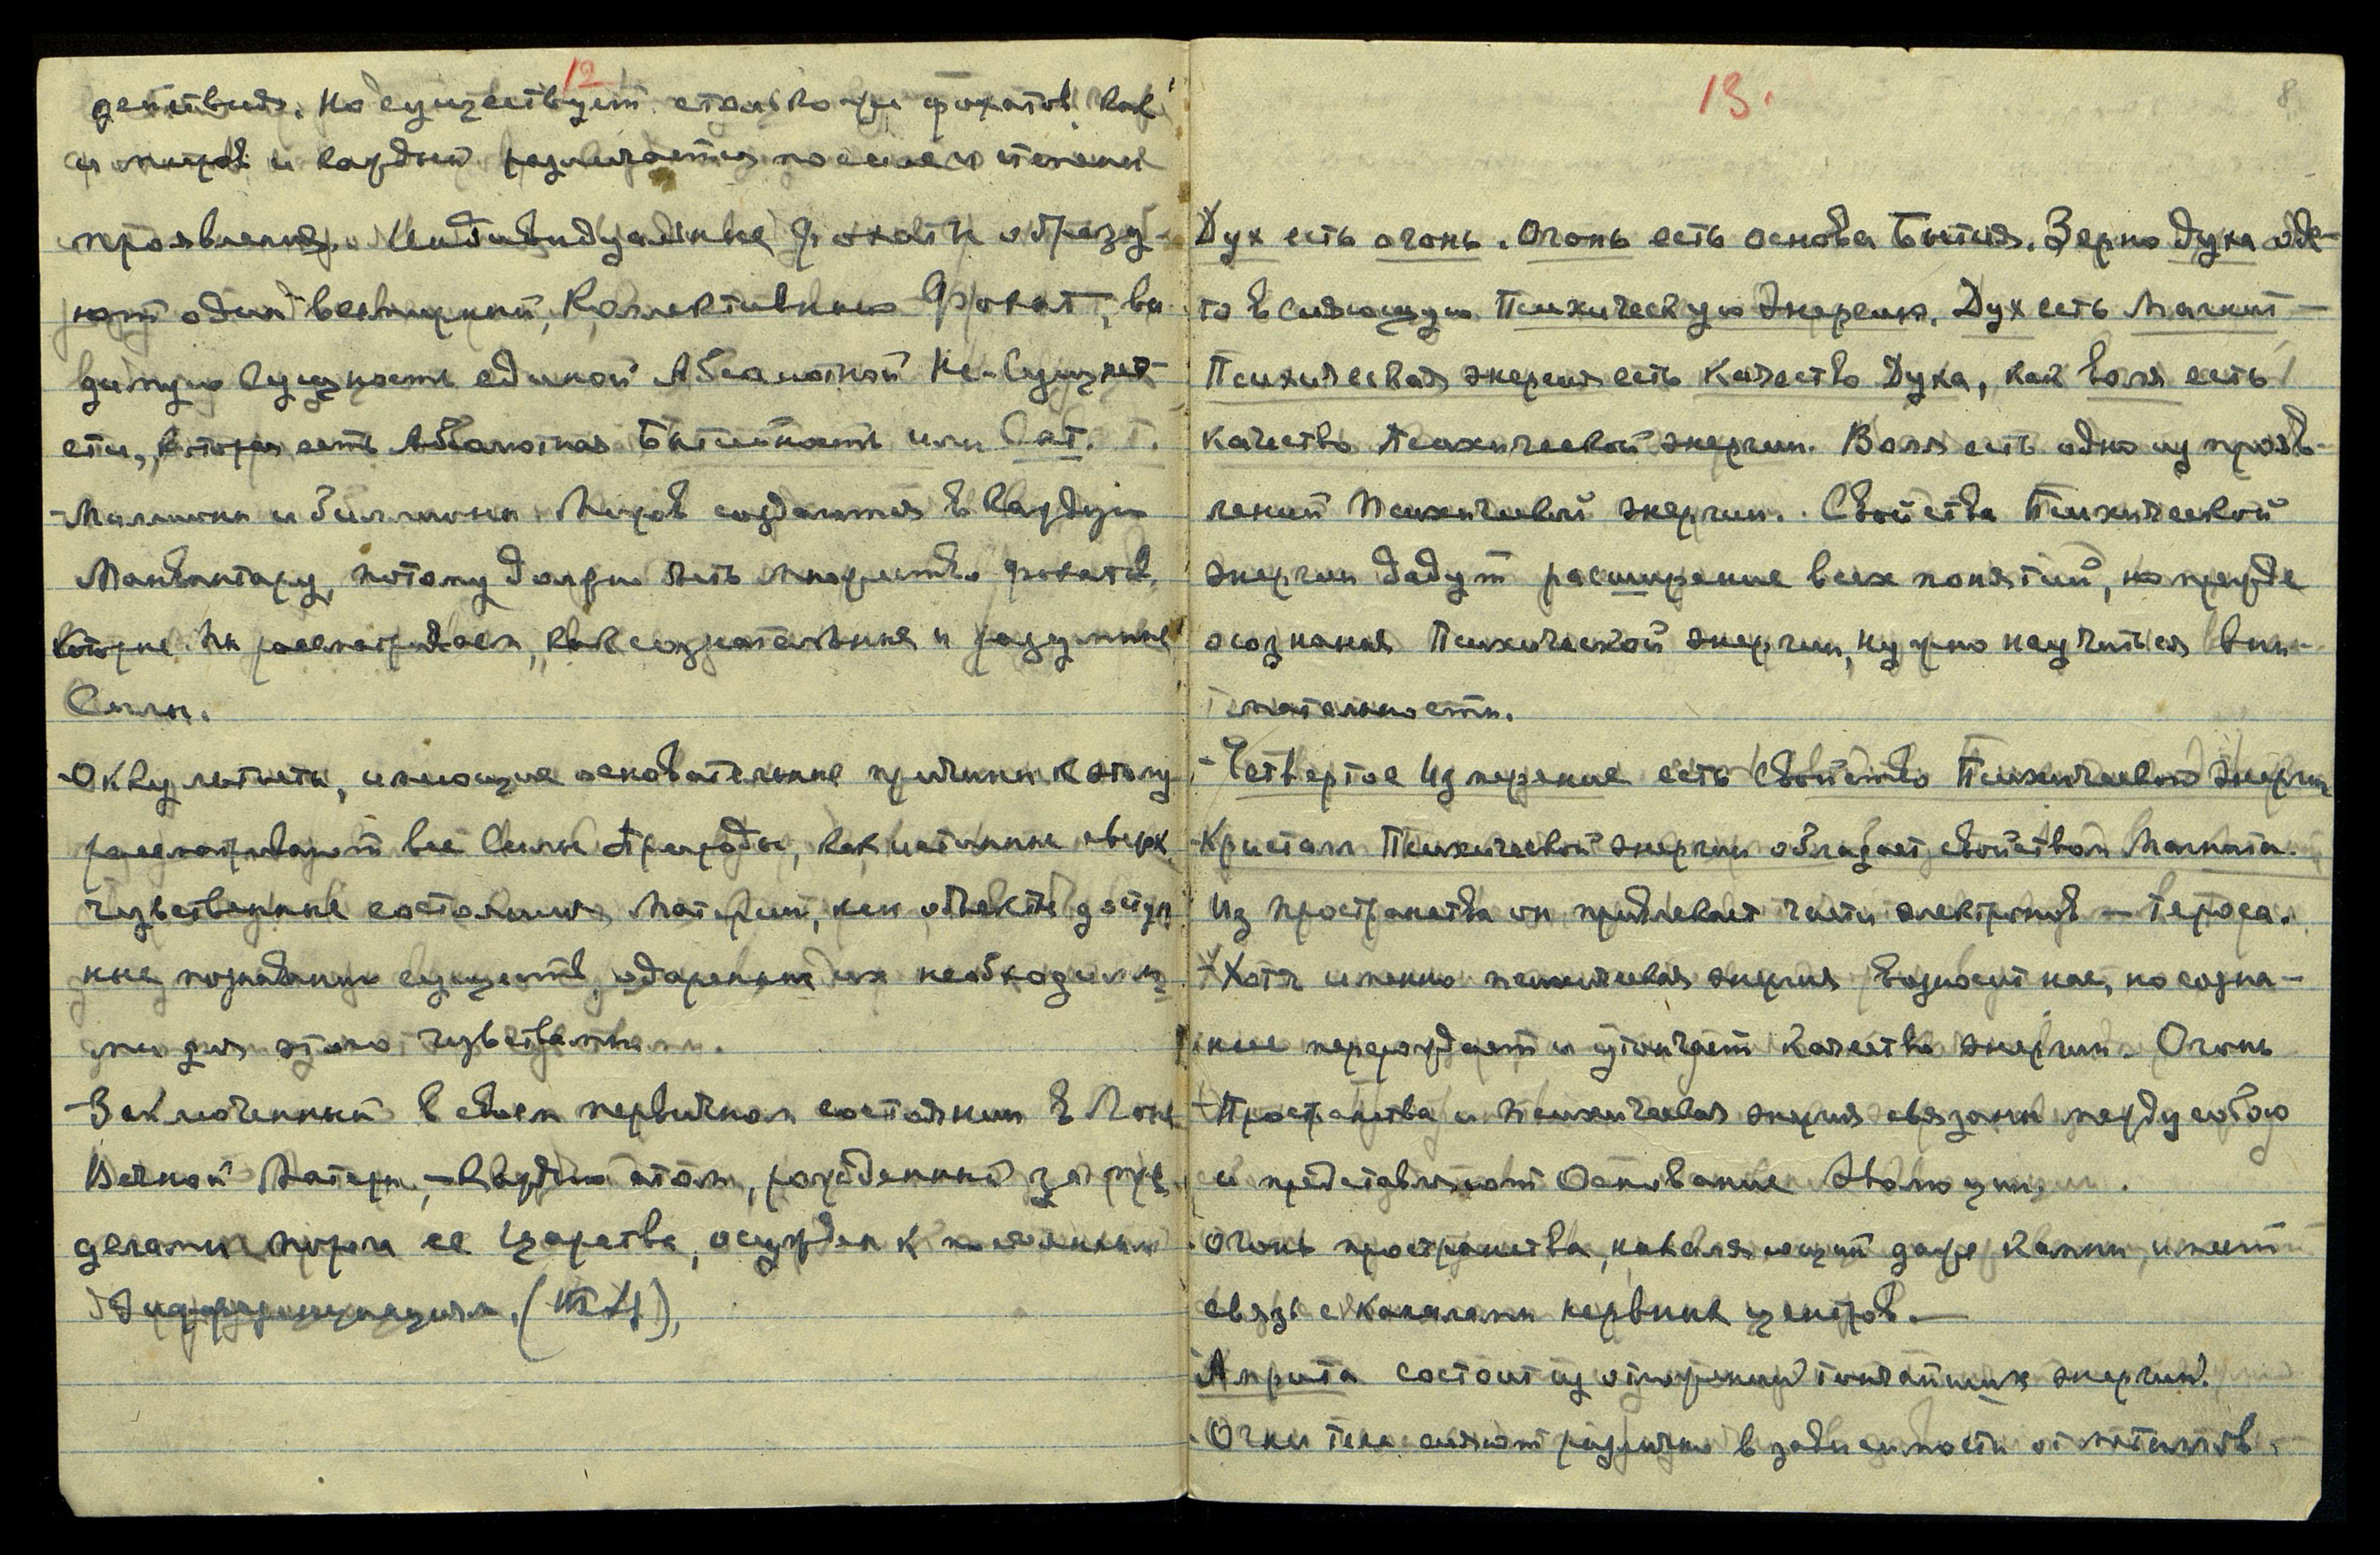 12
действия. Но существует столько же фохатов, как
и миров и каждый различается по силе и степени
проявления. Индивидуальные фохаты образу-
ют один всемирный, Коллективный Фохат, ви-
димую Сущность единой Абсолютной Не-Сущно-
сти, которая есть Абсолютная Бытийность или Сат.
-Миллионы и биллионы Миров создаются в каждую
Манвантару, потому должно быть множество фохатов,
которые мы рассматриваем, как сознательные и разумные
Силы.
-Оккультисты, имеющие основательные причины к этому
рассматривают все Силы Природы, как истинные сверх
чувственные состояния Материи, как объекты доступ
ные познаванию существ, одаренных необходимы
ми для этого чувствами.
-Заключенный в своем первичном состоянии в Лоне
Вечной Матери, - каждый атом, рожденный за пре
делами порога ее царства, осужден к постоянным
дифференциациям.
13.
8
Дух есть огонь. Огонь есть основа Бытия. Зерно духа оде-
то в сияющую Психическую Энергию. Дух есть Магнит —
Психическая энергия есть качество Духа, как воля есть
качество Психической энергии. Воля есть одно из прояв-
лений Психической энергии. Свойства Психической
энергии дадут расширение всех понятий, но прежде
осознания Психической энергии, нужно научиться вни-
мательности.
- Четвертое Измерение есть свойство Психической энергии
-Кристалл Психической энергии обладает свойством Магнита.
Из пространства он привлекает части электронов — Тероса.
-Хотя именно психическая энергия возносит нас, но созна-
ние перерождает и утончает качество энергии. Огонь
-Пространства и психическая энергия связаны между собою
и представляют Основание Эволюции.
-Огонь пространства, накаляющий даже камни, имеет
связь с каналами нервных центров.—
Амрита состоит из отложений тончайших энергий.
-Огни тела сияют различно в зависимости от мотивов